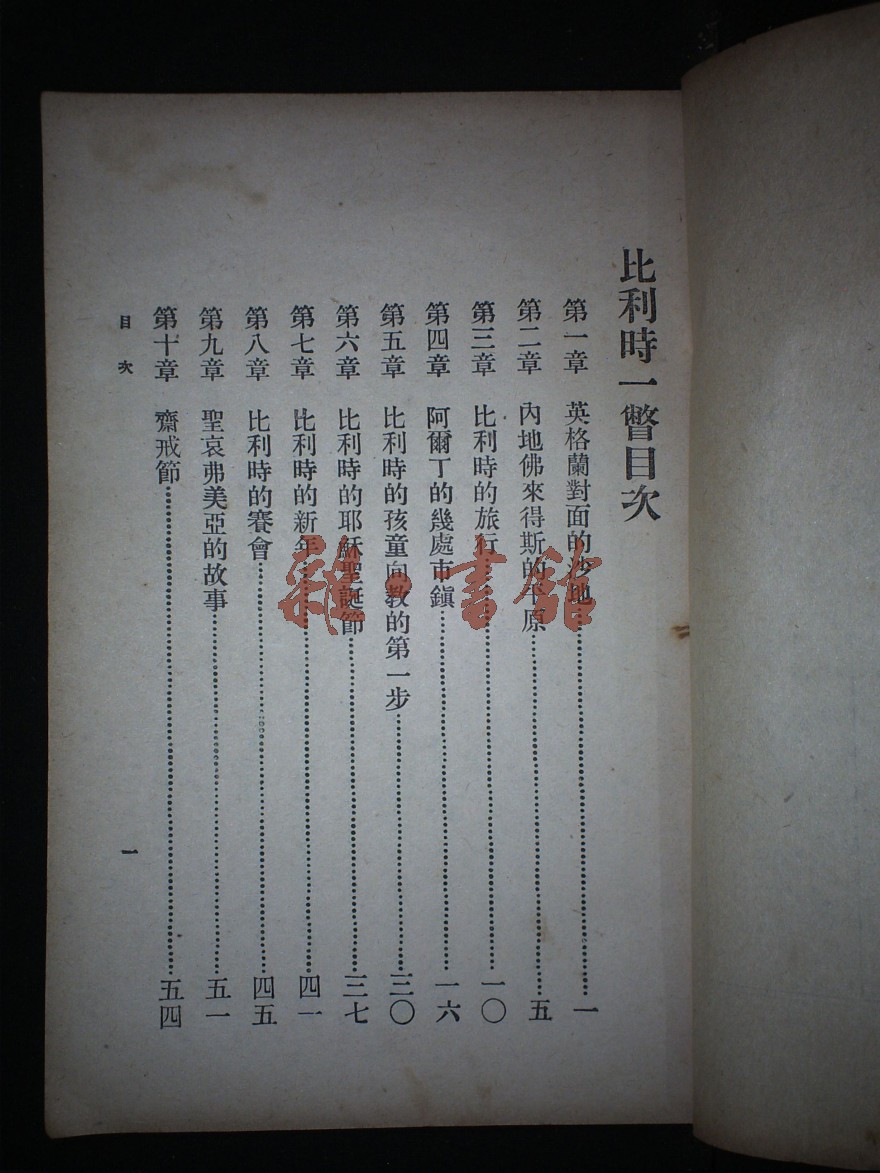 比利時一瞥目次
第一章 英格蘭對面的沙地……一
第二章 內地佛來得斯的平原……五
第三章 比利時的旅行……一〇
第四章 阿爾丁的幾處市鎮……一六
第五章 比利時的孩童向教的第一步……三〇
第六章 比利時的耶穌聖誕節……三七
第七章 比利時的新年……四一
第八章 比利時的賽會……四五
第九章 聖哀弗美亞的故事……五一
第十章 齋戒節……五四
目次
一
雜·書館